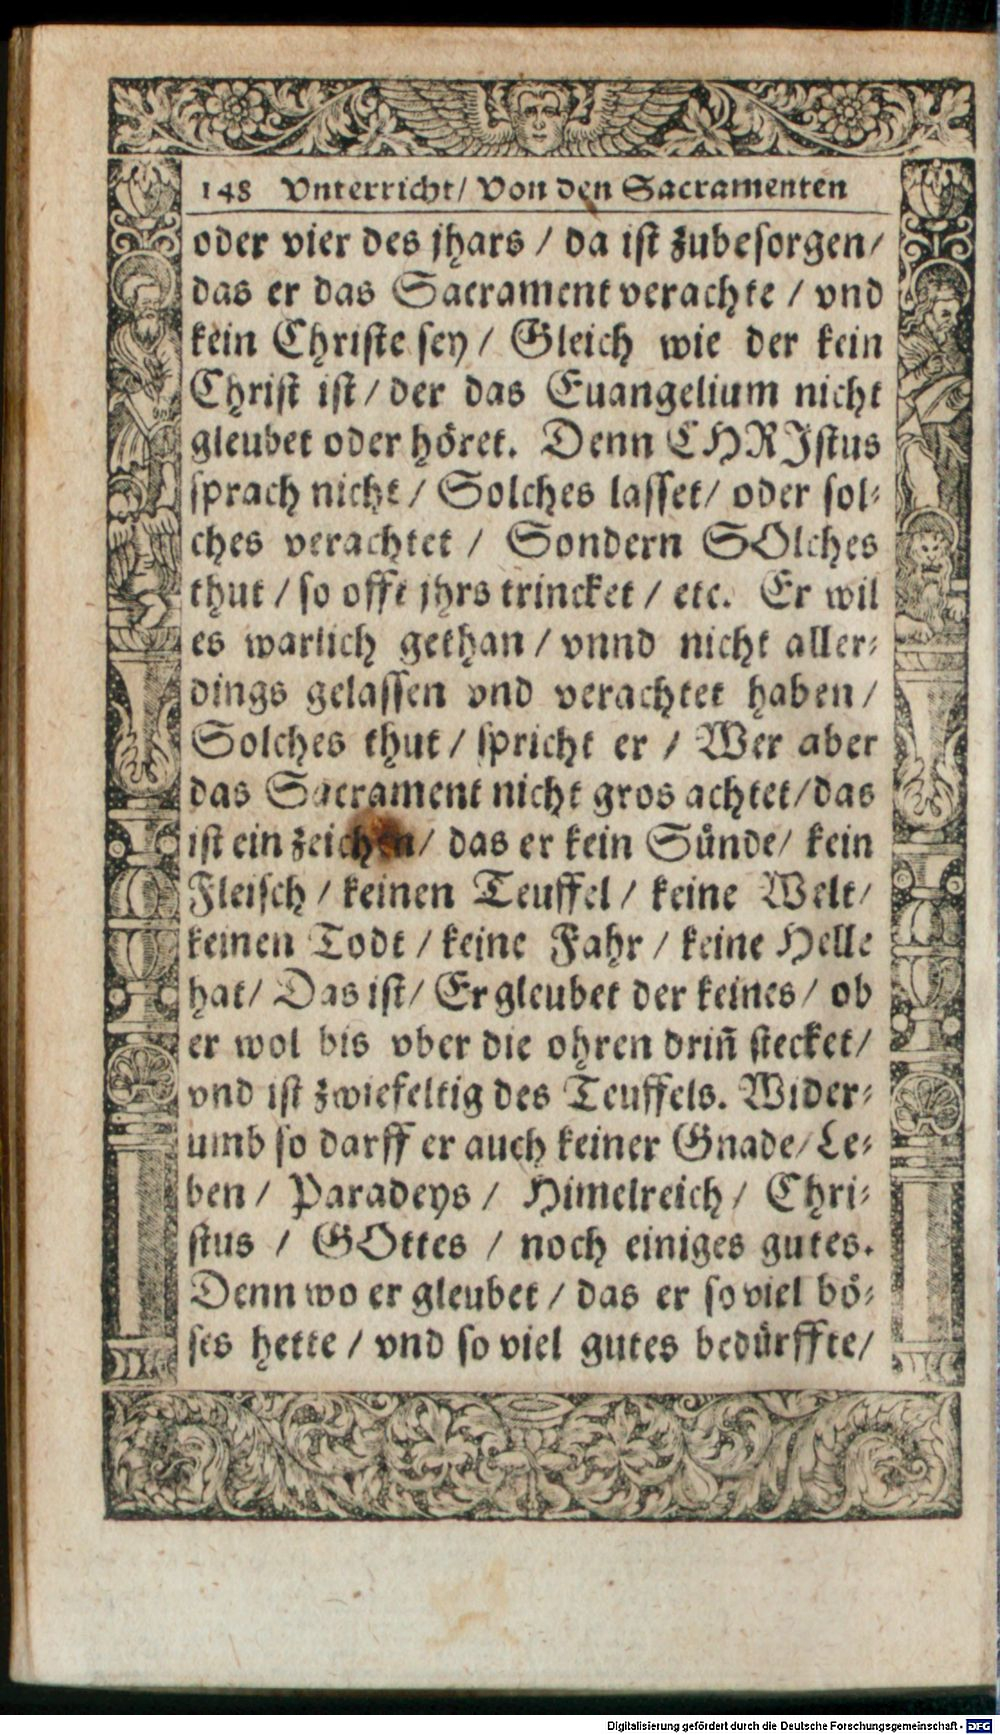 148 Vnterricht/ Von den Sacramenten
oder vier des jhars / da ist zubesorgen/
das er das Sacrament verachte / vnd
kein Christe sey / Gleich wie der kein
Christ ist / der das Euangelium nicht
gleubet oder höret. Denn CHRJstus
sprach nicht / Solches lasset/ oder sol⸗
ches verachtet / Sondern SOlches
thut / so offt jhrs trincket / etc. Er wil
es warlich gethan / vnnd nicht aller⸗
dings gelassen vnd verachtet haben /
Solches thut / spricht er / Wer aber
das Sacrament nicht gros achtet/das
ist ein zeichen/ das er kein Sünde/ kein
Fleisch / keinen Teuffel / keine Welt/
keinen Todt / keine Fahr / keine Helle
hat/ Das ist/ Er gleubet der keines / ob
er wol bis vber die ohren driñ stecket/
vnd ist zwiefeltig des Teuffels. Wider⸗
umb so darff er auch keiner Gnade/ Le⸗
ben / Paradeys / Himelreich / Chri⸗
stus / GOttes / noch einiges gutes.
Denn wo er gleubet / das er so viel bö⸗
ses hette / vnd so viel gutes bedürffte/
Digitalisierung gefördert durch die Deutsche Forschungsgemeinschaft - DFG